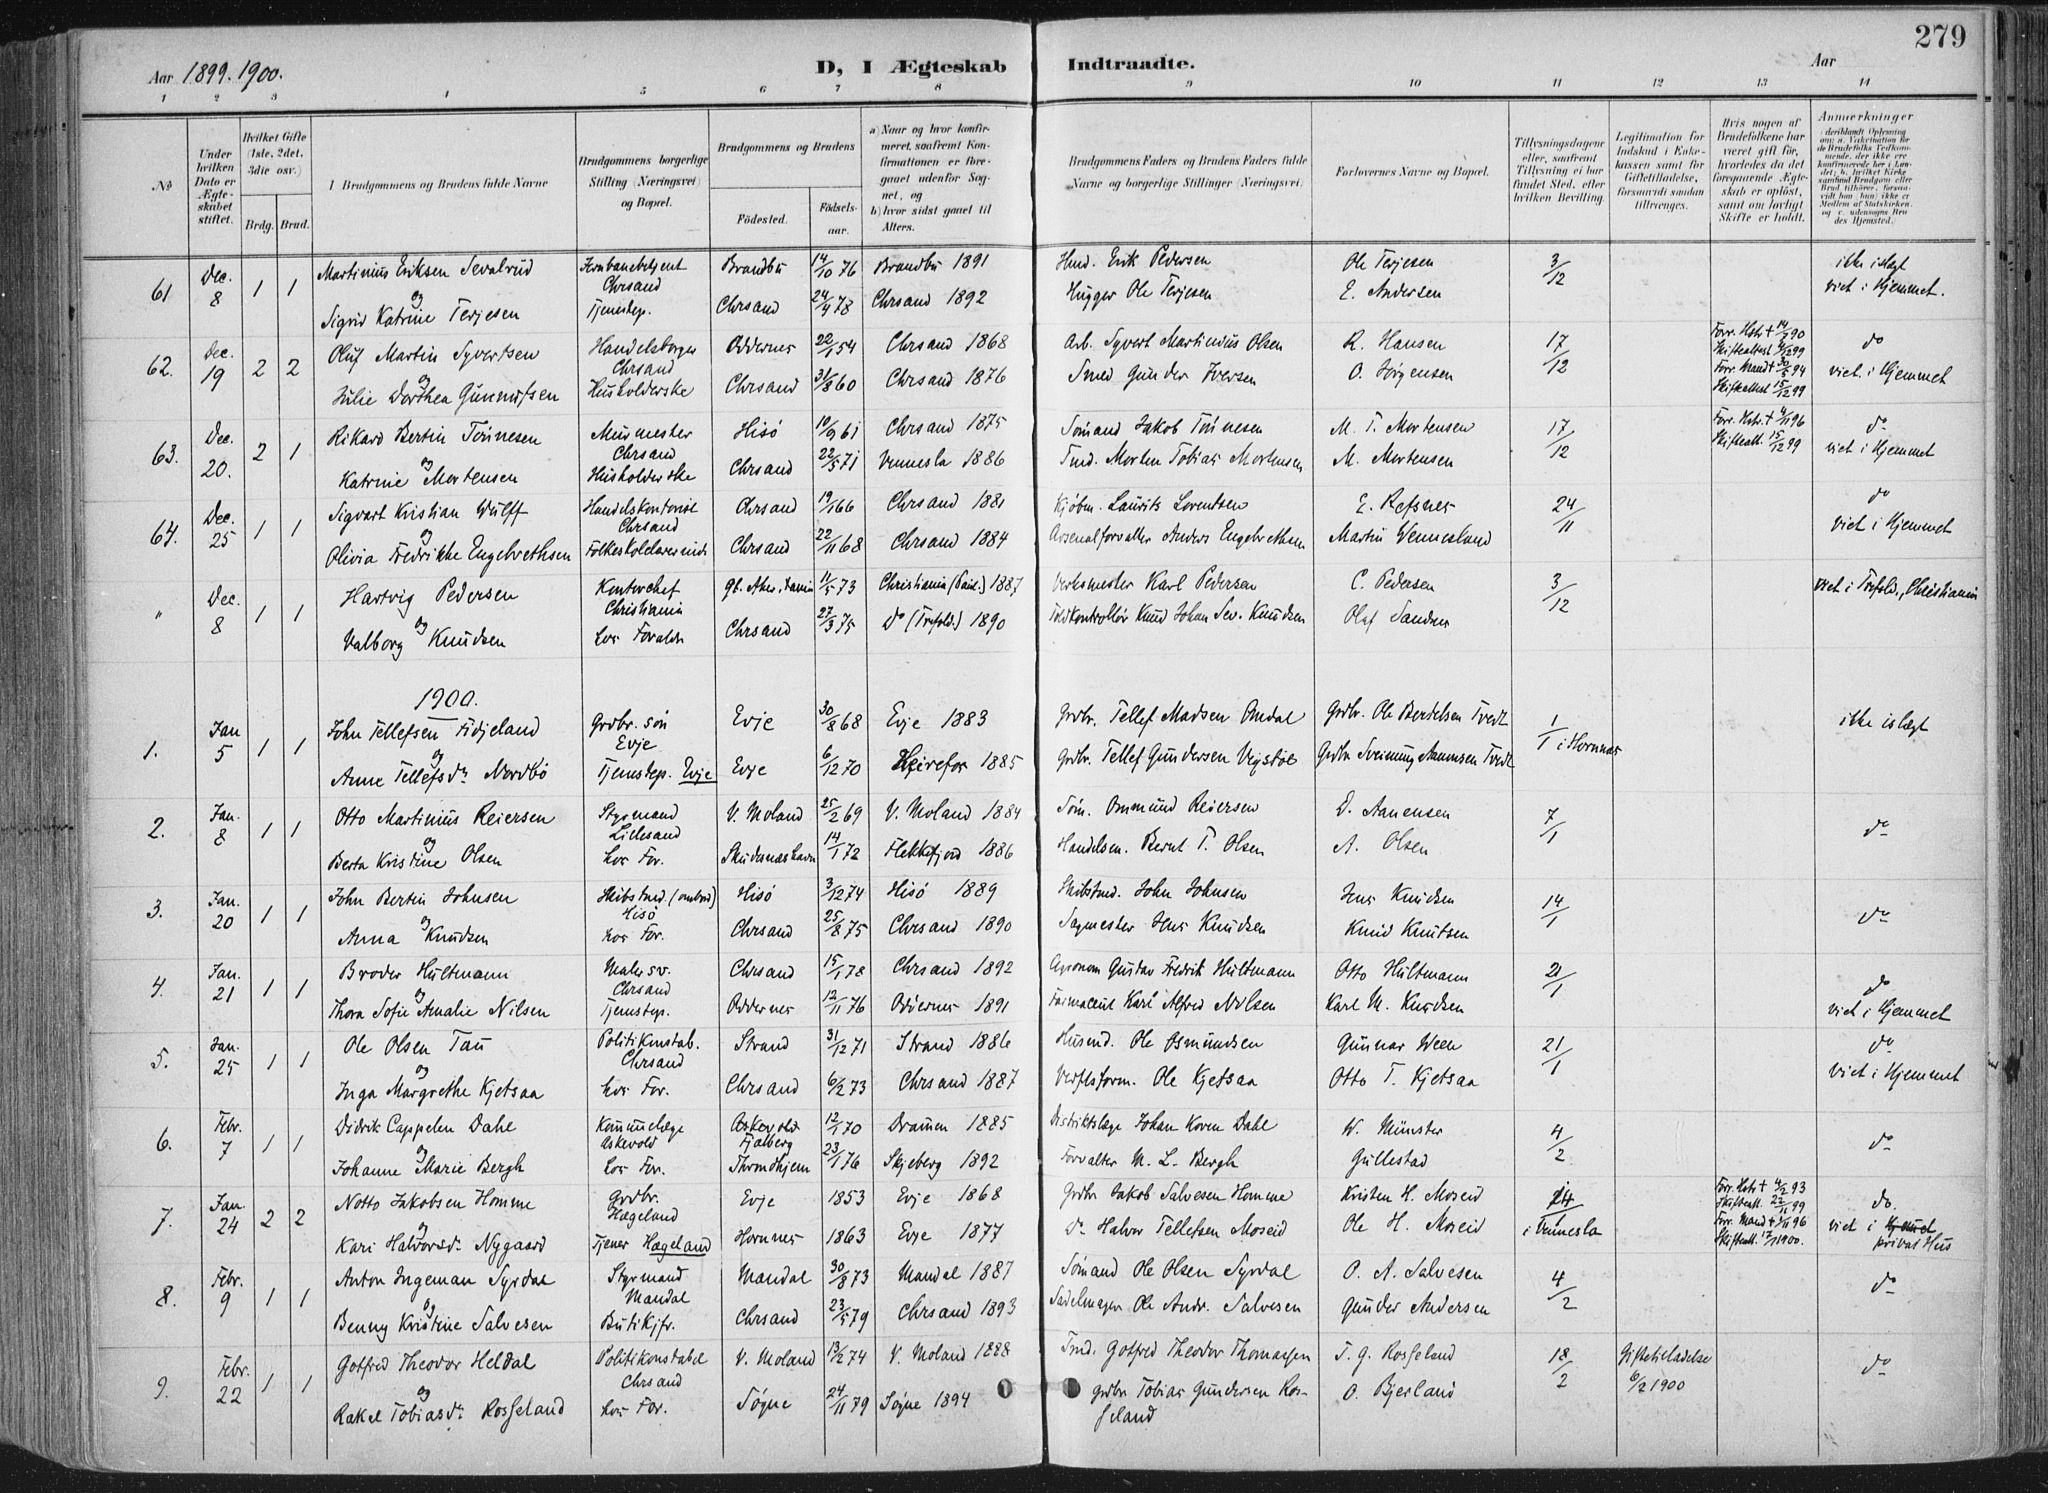 279
Aar 1899. 1900.
D, I Ægteskab Indtraadte.
Aar
1 2 3 4 5 6 7 8 9 10 11 12 13 14
No
Under hvilken Dato er Ægteskabet stiftet.
Hvilket Gifte (1ste, 2det, 3die osv.)
Brdg. Brud.
Brudgommens og Brudens fulde Navne
Brudgommens borgerlige Stilling (Næringsvei) og Bopæl.
Brudgommens og Brudens
Födested.
Födselsaar.
a) Naar og hvor konfirmeret, saafremt Konfirmationen er foregaaet udenfor Sognet, og
b) hvor sidst gaaet til Alters.
Brudgommens Faders og Brudens Faders fulde Navne og borgerlige Stillinger (Næringsvei)
Forlovernes Navne og Bopæl.
Tillysningsdagene eller, saafremt Tillysning ei har fundet Sted, efter hvilken Bevilling.
Legitimation for Indskud i Enkekassen samt for Giftetilladelse, forsaavidt saadan tiltrænges.
Hvis nogen af Brudefolkene har været gift før, hvorledes da det foregaaende Ægteskab er opløst, samt om lovligt Skifte er holdt.
Anmærkninger
61 Dec. 8 1 1 Martinius Eriksen Sevalrud Jernbanebetjent Chrsand Brandbu 14/10 76 Brandbu 1891 Husd. Erik Pedersen Ole Terjesen 3/12 ikke islægt
og Sigrid Katrine Terjesen Tjenstep. Chrsand 24/9 78 Chrsand 1892 Hugger Ole Terjesen E. Andersen viet i Hjemmet.
62. Dec. 19 2 2 Oluf Martin Syvertsen Handelsborger Chrsand Oddernes 22/1 54 Chrsand 1868 Arb. Syvert Martinius Olsen R. Hansen 17/12 Forr. Hstr + 14/2 90 do
og Julie Dorthea Gunnufsen Husholderske Chrsand 31/8 60 Chrsand 1876 Smed Gunder Iversen O. Jørgensen Forr. Mand + 30/5 94 Skifteattest 15/12 99 viet i Hjemmet
63. Dec. 20. 2 1 Rikard Bertin Tönnesen Murmester Chrsand Hisö 10/9 61 Chrsand 1875 Sömand Jakob Tönnesen M. T. Mortensen 17/12 Forr. Hstr. + 4/11 96 Skifteatt. 15/12 99 do
og Katrine Mortensen Husholderske Chrsand 22/5 71 Vennesla 1886 Tmd. Morten Tobias Mortensen M. Mortensen viet i Hjemmet
64. Dec. 25 1 1 Sigvart Kristian Wulff Handelskontorist Chrsand Chrsand 19/1 66 Chrsand 1881 Kjøbm. Laurits Lorentsen E. Refsnes 24/11 do
og Olivia Fredrikke Engebrethsen Folkeskolelærerinde Chrsand 22/11 68 Chrsand 1884 Arsenalforvalter Anders Engebrethsen Martin Wennesland viet i Hjemmet
" Dec. 8 1 1 Hartvig Pedersen Kontorchef Christiania Gl. Aker, 11/5 73 Christiania (Paul.) 1887 Verksmester Karl Pedersen C. Pedersen 3/12 viet i Trefold., Christiania
og Valborg Knudsen hos Forældr. Chrsand 27/3 75 do (Trefold.) 1890 Toldkontrollör Knud Johan Sev. Knudsen Olaf Sandnes
1900.
1. Jan 5 1 1 John Tellefsen Fidjeland Grdbr. sön Evje Evje 30/8 68 Evje 1883 Grdbr. Tellef Madsen Omdal Grdbr. Ole Bertelsen Tvedt 1/1 i Hornnes ikke islægt
og Anne Tellefsdr Nordbö Tjenstep. Evje Evje 6/12 70 Herefos 1885 Grdbr. Tellef Gundersen Vegstöl Grdbr Sveinung Aanensen Tvedt
2. Jan. 8 1 1 Otto Martinius Reiersen Styrmand Lillesand V. Moland 25/2 69 V. Moland 1884 Söm. Ommund Reiersen D. Aanensen 7/1 do
og Berta Kristine Olsen hos For. Skudesneshavn 14/1 72 Flekkefjord 1886 Handelsm. Bernt T. Olsen A. Olsen
3. Jan. 20 1 1 John Bertin Johnsen Skibstmd. (ombord) Hisö Hisö 3/12 74 Hisö 1889 Skibstmd. John Johnsen Jens Knudsen 14/1 do
og Anna Knudsen hos For. Chrsand 25/8 75 Chrsand 1890 Sagmester Jens Knudsen Knud Knutsen
4. Jan. 21 1 1 Broder Hultmann Malersv. Chrsand Chrsand 15/1 78 Chrsand 1892 Agronom Gustav Fredrik Hultmann Otto Hultmann 21/1 do
og Thora Sofie Amalie Nilsen Tjenstep. Oddernes 12/11 76 Oddernes 1891 Farmaceut Karl Alfred Nilsen Karl M. Knudsen viet i Hjemmet
5. Jan. 25 1 1 Ole Olsen Tau Politikonstab. Chrsand Strand 31/12 71 Strand 1886 Husmd. Ole Osmundsen Gunnar Ween 21/1 do
og Inga Margrethe Kjetsaa hos For. Chrsand 6/2 73 Chrsand 1887 Verftsform. Ole Kjetsaa Otto T. Kjetsaa viet i Hjemmet
6. Febr. 7 1 1 Didrik Cappelen Dahl Kommunelæge Askevold Askevold Fjalberg 12/1 70 Drammen 1885 Distriktslæge Johan Koren Dahl W. Münster 4/2 do
og Johanne Marie Bergh hos For. Throndhjem 23/1 76 Skjeberg 1892 Forvalter M. L. Bergh Gullestad
7. Jan 24 2 2 Notto Jakobsen Homme Grdbr. Hægeland Evje 1853 Evje 1868 Grdbr Jakob Salvesen Homme Kristen H. Moseid 14/1 i Vennesla Forr. Hstr + 4/2 93 Skifteatt. 22/11 99 do.
og Kari Halvorsdr Nygaard Tjener Hægeland Hornnes 1863 Evje 1877 do Halvor Tellefsen Moseid Ole H. Moseid Forr. Mand + 96 Skifteatt. 1900. viet i Hjemmet privat Hus
8. Febr. 9 1 1 Anton Ingeman Syrdal Styrmand Mandal Mandal 30/8 73 Mandal 1887 Sömand Ole Olsen Syrdal O. A. Salvesen 4/2 do
og Benny Kristine Salvesen Butikjfr. Chrsand 23/5 79 Chrsand 1893 Sadelmager Ole Andr. Salvesen Gunder Andersen
9. Febr. 22 1 1 Gotfred Theodor Heldal Politikonstabel Chrsand V. Moland 13/2 74 V. Moland 1888 Tmd. Gotfred Theodor Thomassen T. G. Rosseland 18/2 Giftetilladelse 6/2 1900 do
og Rakel Tobiasdr Rosseland hos For. Søgne 24/11 79 Søgne 1894 Grdbr Tobias Gundersen Rosseland O. Bjerland